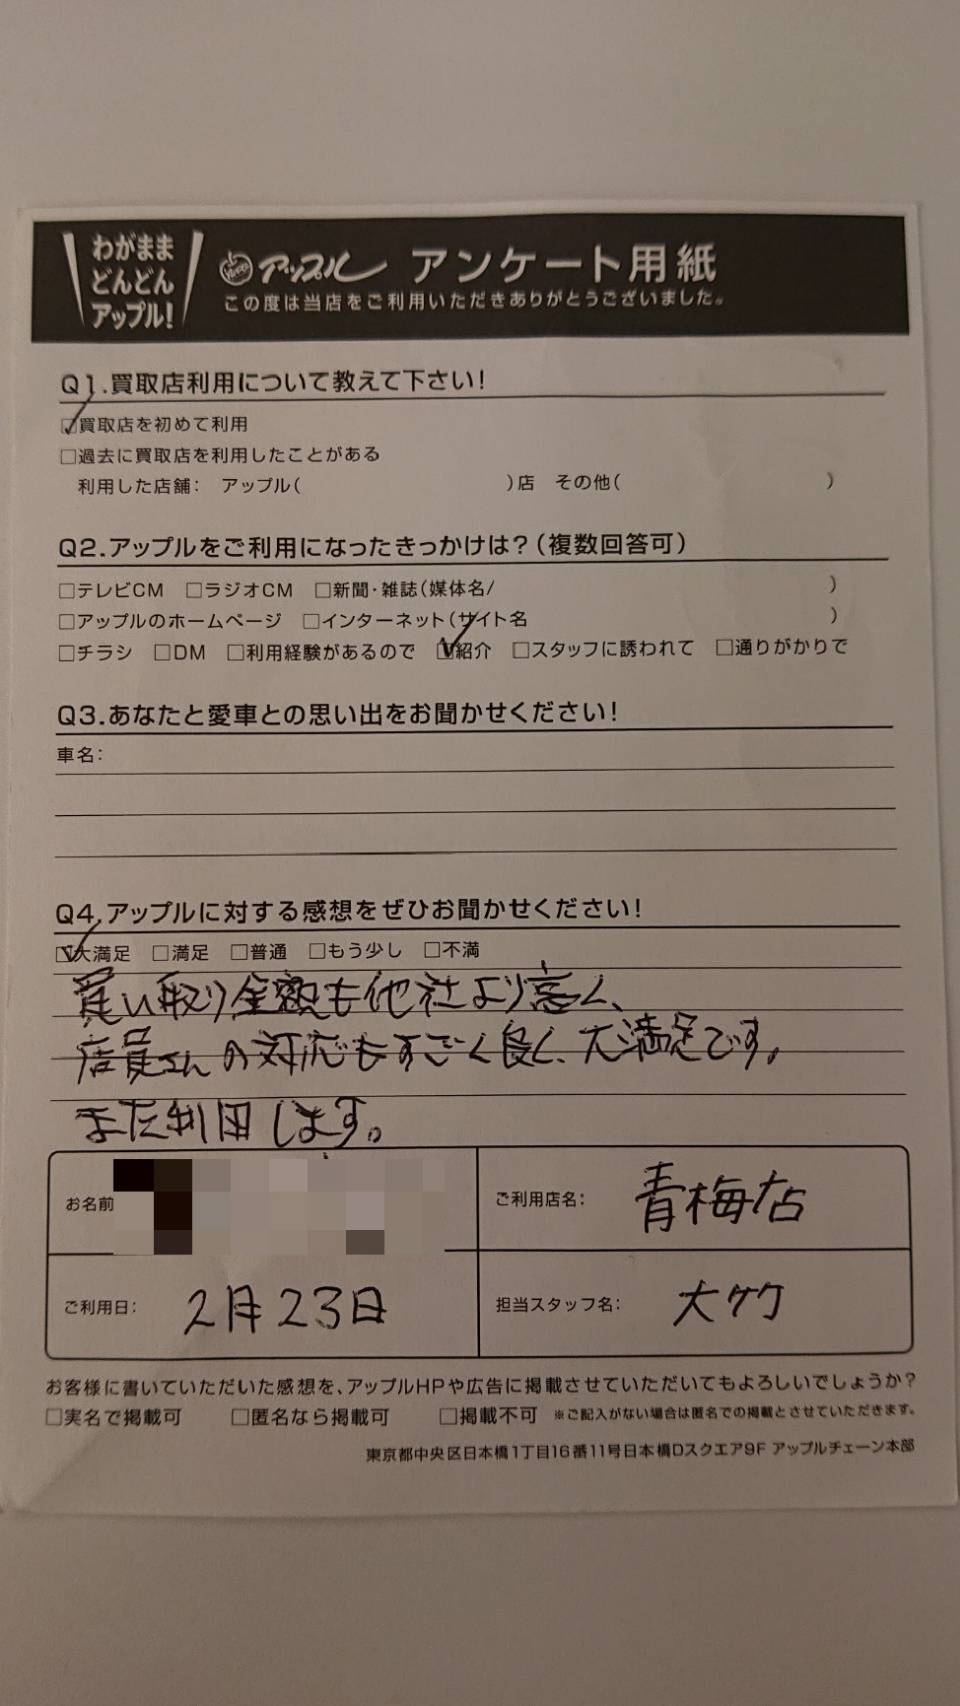 わがまま
どんどん
アップル!
アップル アンケート用紙
この度は当店をご利用いただきありがとうございました。
Q1.買取店利用について教えて下さい!
☑買取店を初めて利用
□過去に買取店を利用したことがある
利用した店舗: アップル( )店 その他( )
Q2.アップルをご利用になったきっかけは?(複数回答可)
□テレビCM □ラジオCM □新聞・雑誌(媒体名/ )
□アップルのホームページ □インターネット(サイト名 )
□チラシ □DM □利用経験があるので ☑紹介 □スタッフに誘われて □通りがかりで
Q3.あなたと愛車との思い出をお聞かせください!
車名:
Q4.アップルに対する感想をぜひお聞かせください!
☑大満足 □満足 □普通 □もう少し □不満
買い取り金額も他社より高く、
店員さんの対応もすごく良く、大満足です。
また利用します。
お名前
ご利用店名: 青梅店
ご利用日: 2月23日
担当スタッフ名: 大竹
お客様に書いていただいた感想を、アップルHPや広告に掲載させていただいてもよろしいでしょうか?
□実名で掲載可 □匿名なら掲載可 □掲載不可 ※ご記入がない場合は匿名での掲載とさせていただきます。
東京都中央区日本橋1丁目16番11号日本橋Dスクエア9F アップルチェーン本部